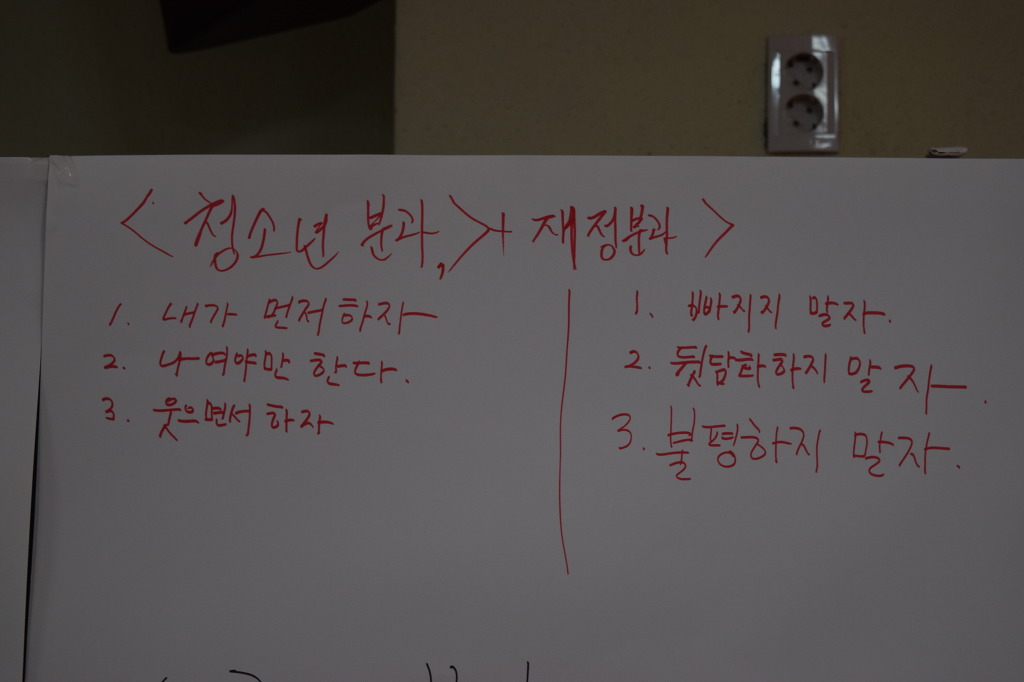 <청소년 분과,>+ 재정분과>
1. 내가 먼저 하자
2. 나여야만 한다.
3. 웃으면서 하자
1. 빠지지 말자.
2. 뒷담화하지 말자.
3. 불평하지 말자.